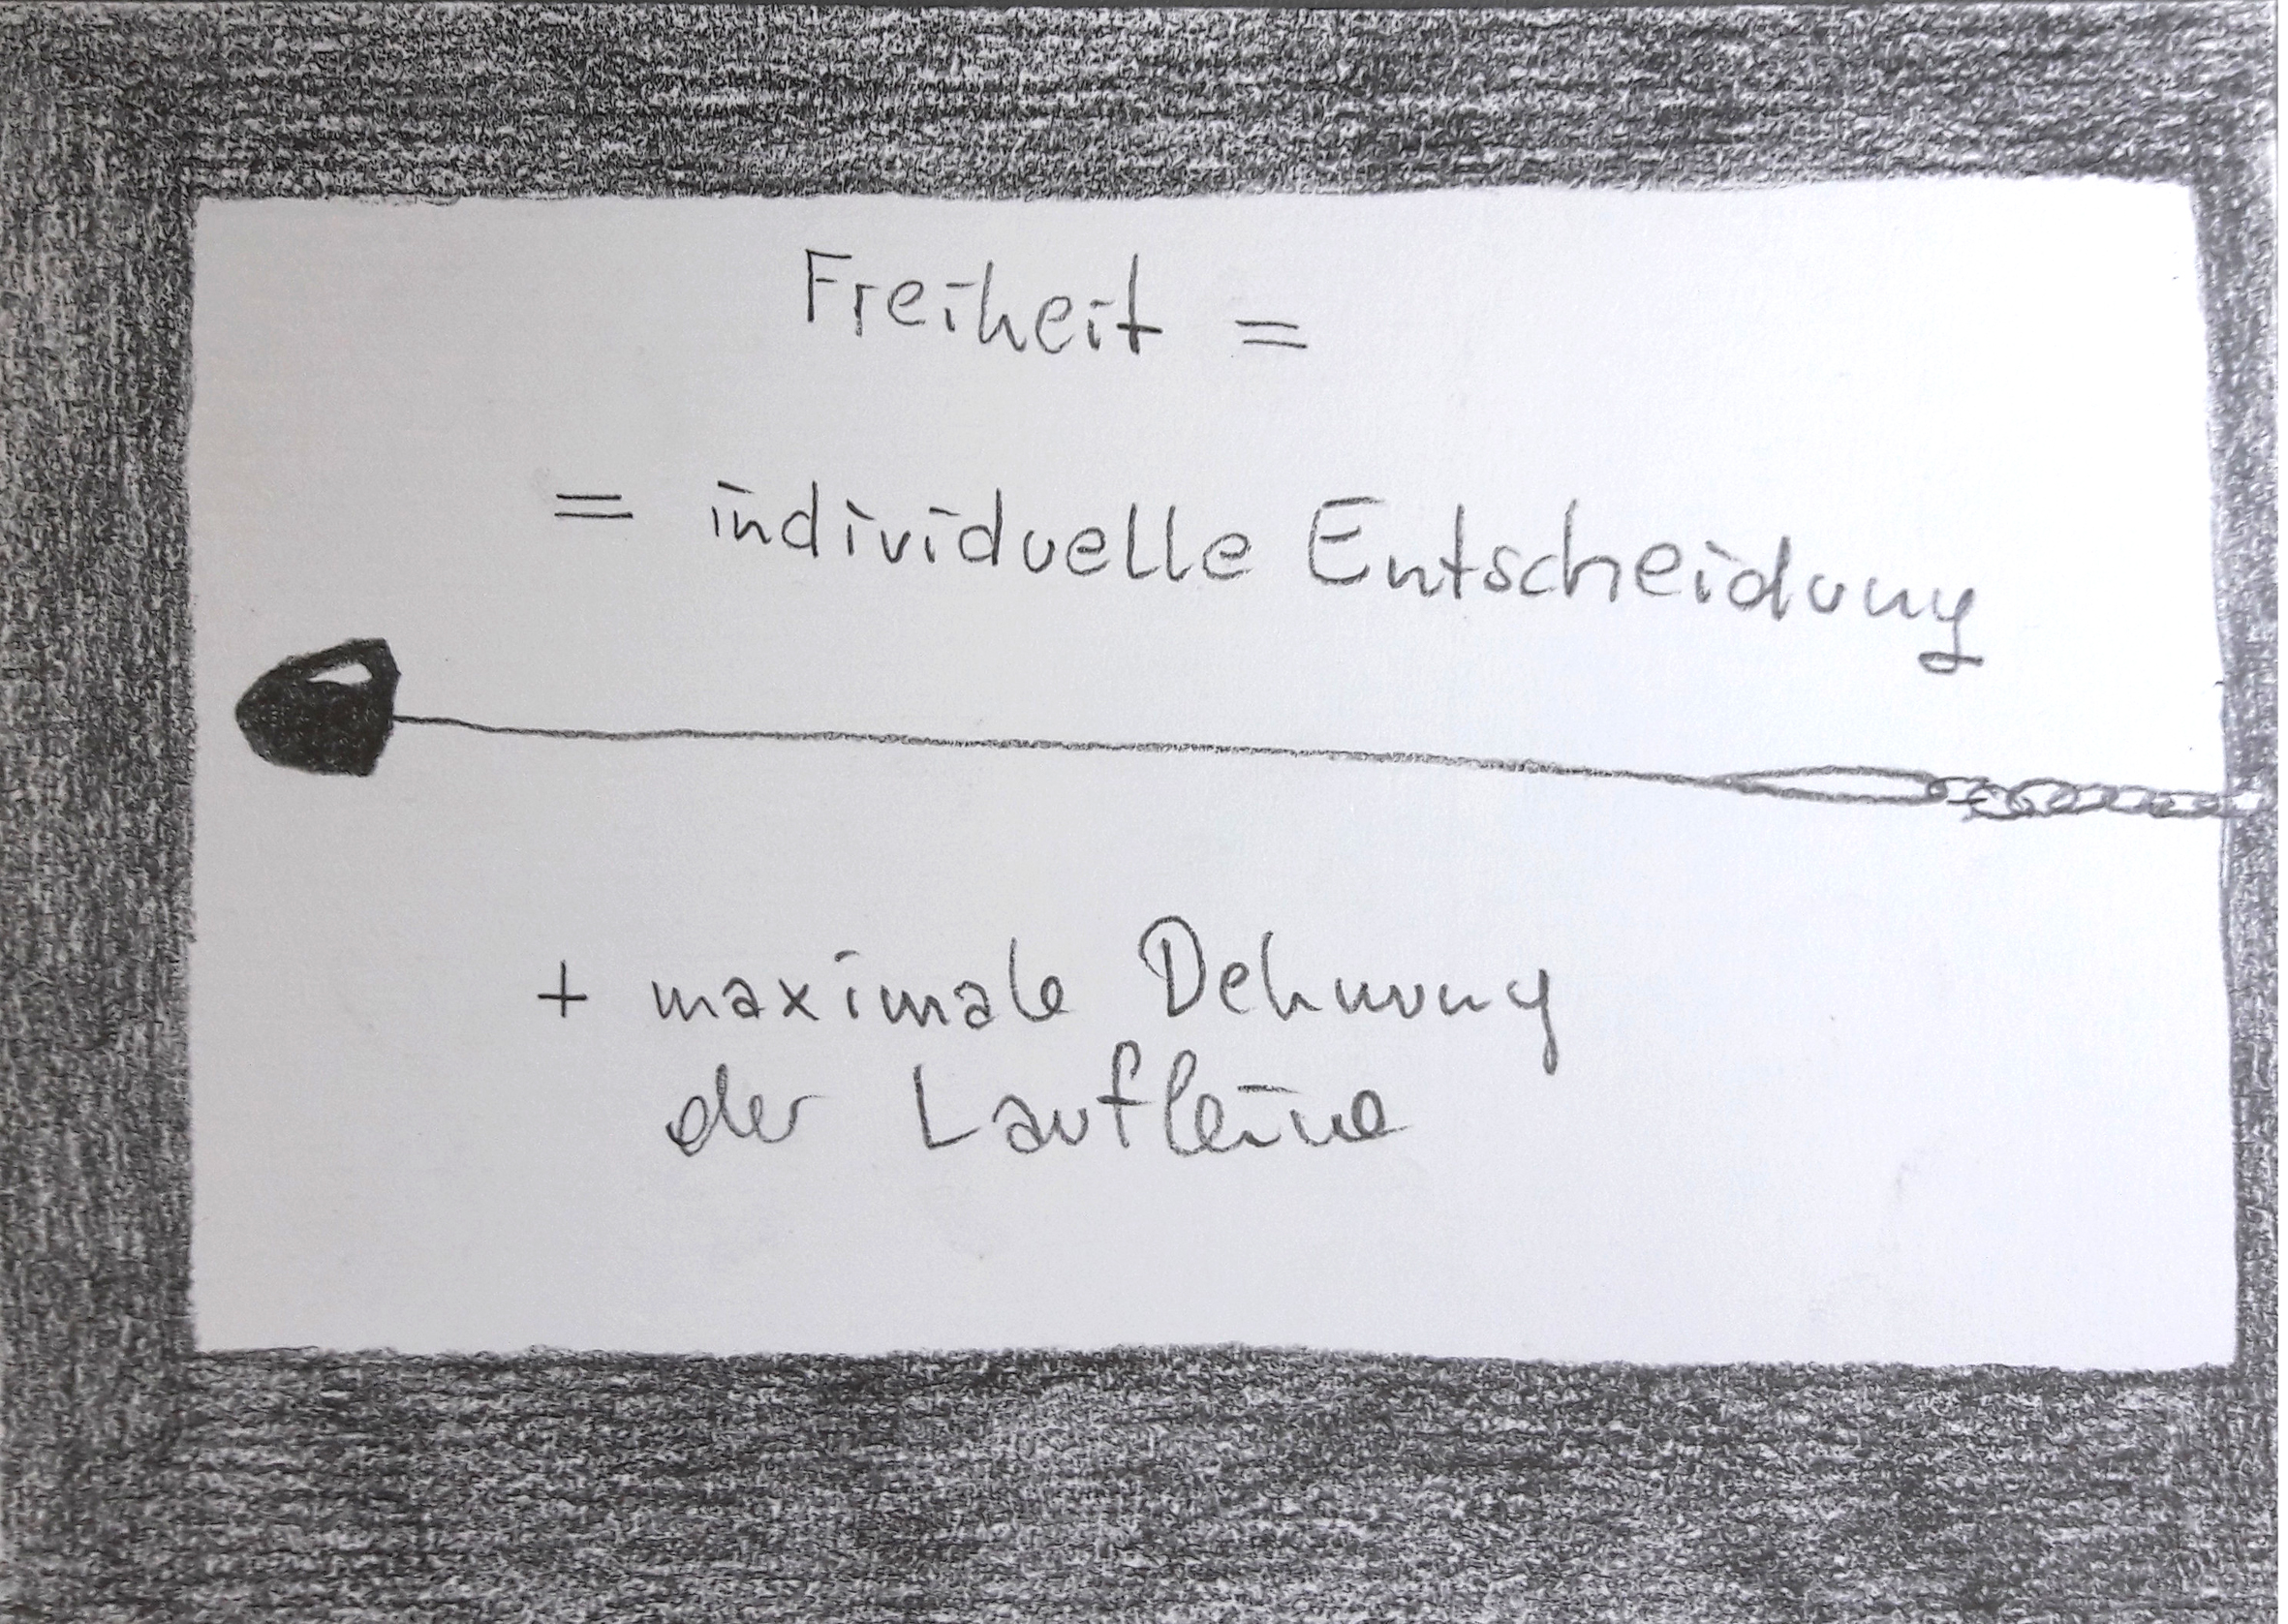 Freiheit =
= individuelle Entscheidung
+ maximale Dehnung
der Laufleine